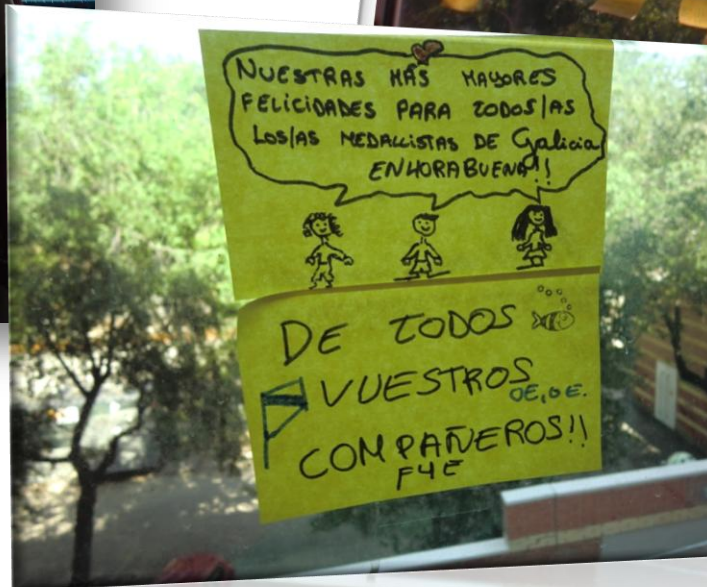 NUESTRAS MÁS MAYORES
FELICIDADES PARA TODOS/AS
LOS/AS MEDALLISTAS DE Galicia
ENHORABUENA!!
DE TODOS
VUESTROS
OE, OE.
COMPAÑEROS!!
F4E